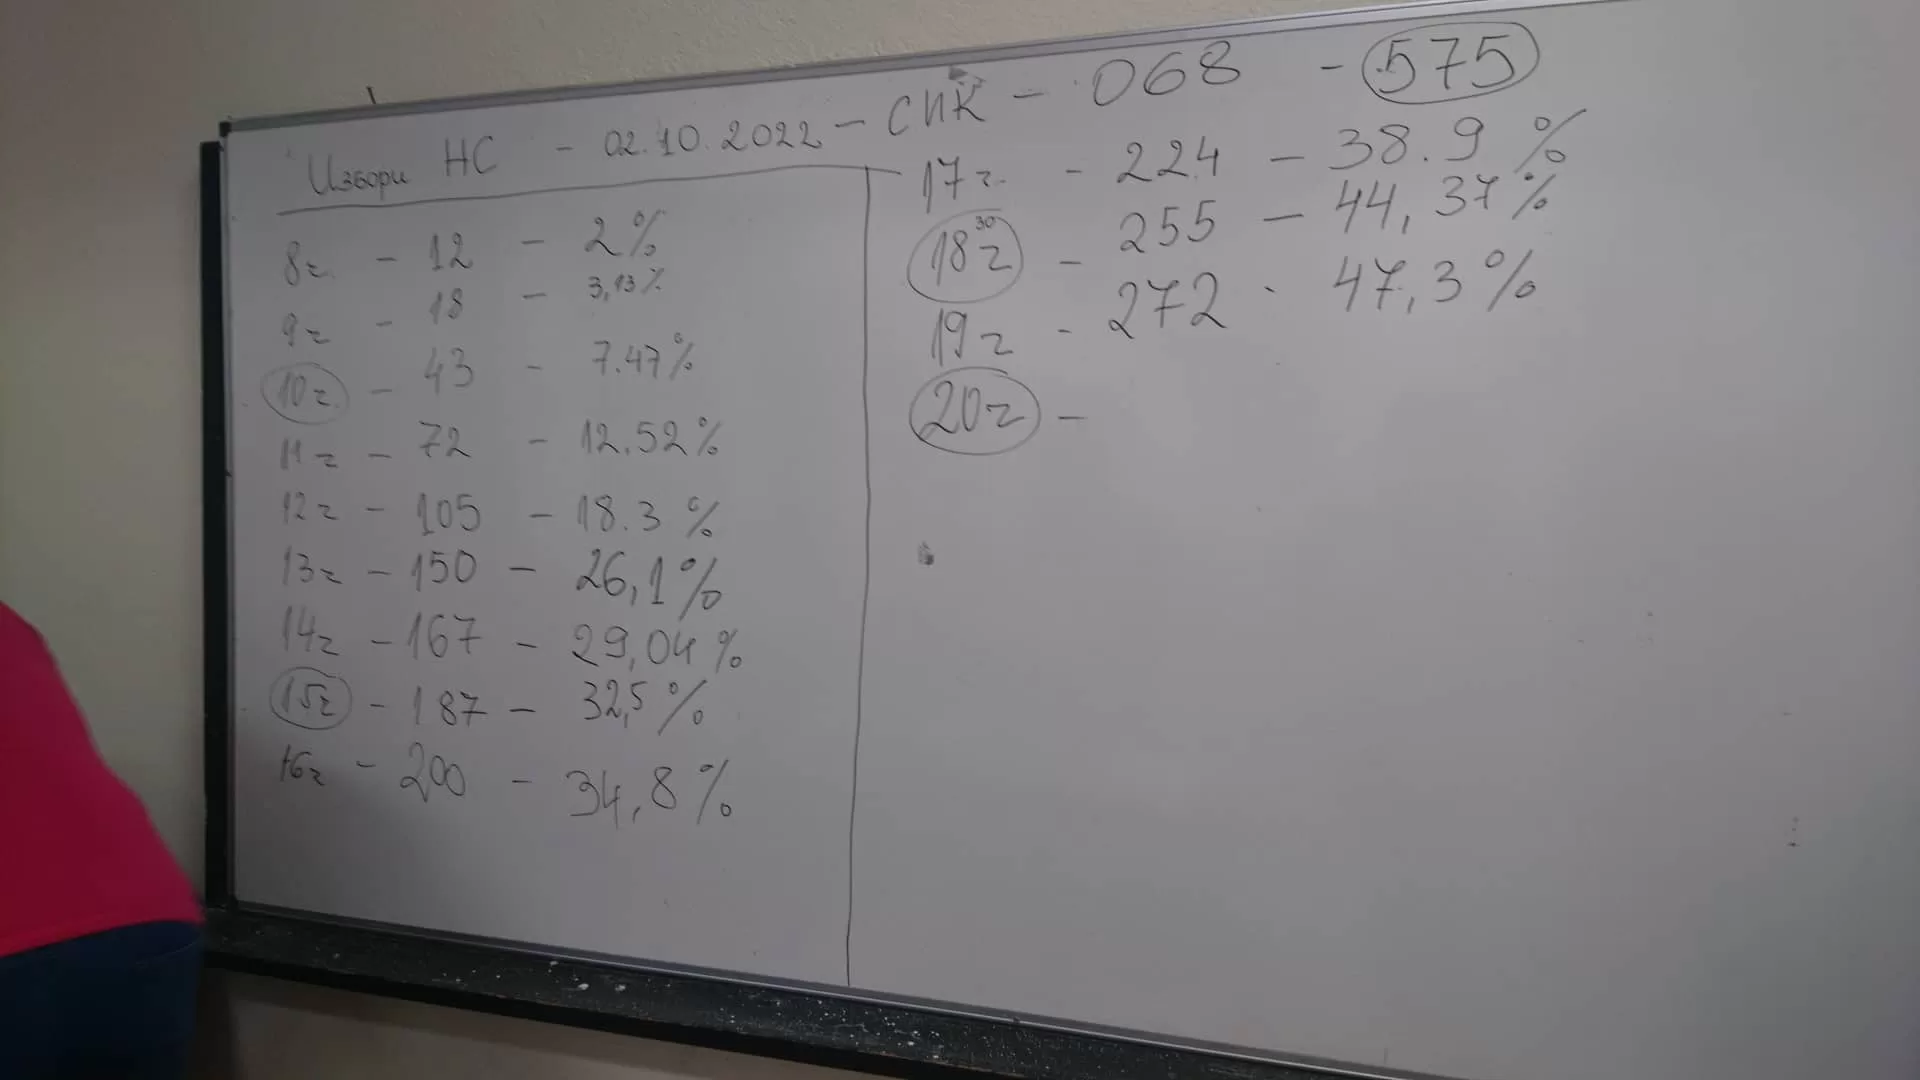 Избори НС - 02.10.2022 - СИК - 068 - 575
8ч. - 12 - 2%
9ч - 18 - 3,13%
10ч. - 43 - 7.47%
11ч - 72 - 12.52%
12ч - 105 - 18.3 %
13ч - 150 - 26,1%
14ч - 167 - 29,04%
15ч - 187 - 32,5%
16ч - 200 - 34,8%
17ч. - 224 - 38.9 %
18³⁰ч - 255 - 44,37%
19ч - 272 - 47,3%
20ч -